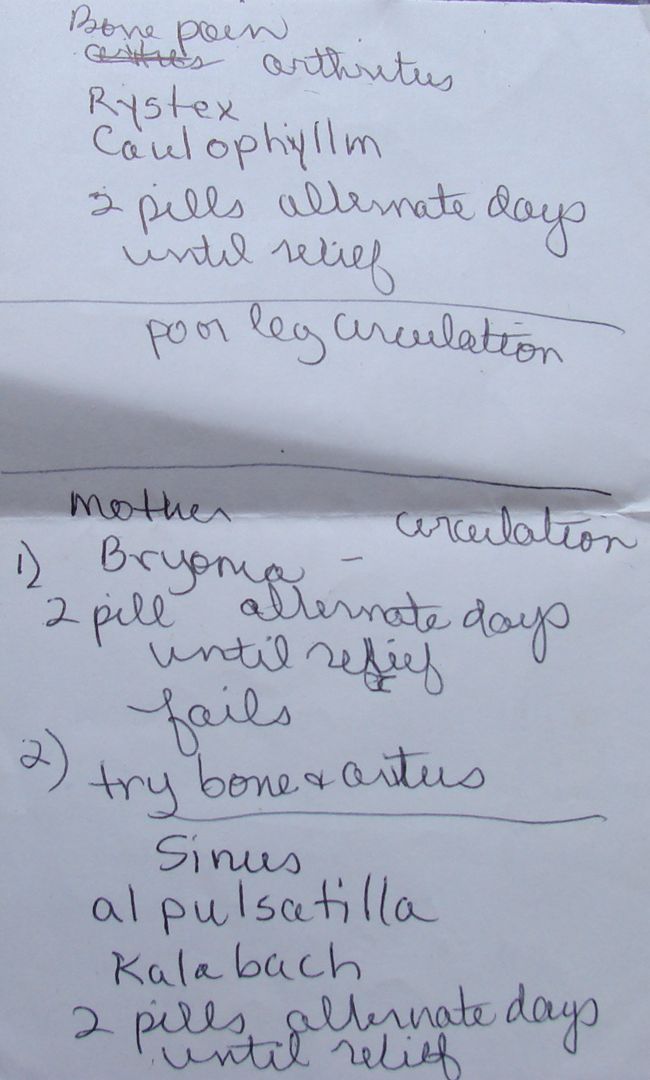 Bone pain
arthritus
Rystex
Caulophyllm
2 pills alternate days
until relief
poor leg circulation
mother circulation
1) Bryonia -
2 pill alternate days
until relief
fails
2) try bone & artus
Sinus
al pulsatilla
Kala bach
2 pills alternate days
until relief